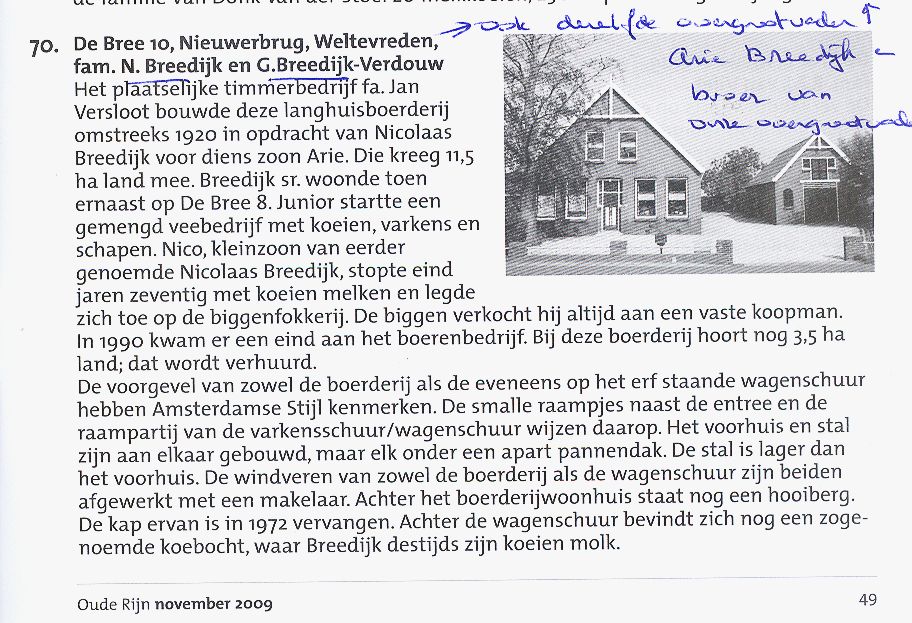 → ook dezelfde overgrootvader ↑
Arie Breedijk
broer van
onze overgrootvad
70. De Bree 10, Nieuwerbrug, Weltevreden,
fam. N. Breedijk en G.Breedijk-Verdouw
Het plaatselijke timmerbedrijf fa. Jan
Versloot bouwde deze langhuisboerderij
omstreeks 1920 in opdracht van Nicolaas
Breedijk voor diens zoon Arie. Die kreeg 11,5
ha land mee. Breedijk sr. woonde toen
ernaast op De Bree 8. Junior startte een
gemengd veebedrijf met koeien, varkens en
schapen. Nico, kleinzoon van eerder
genoemde Nicolaas Breedijk, stopte eind
jaren zeventig met koeien melken en legde
zich toe op de biggenfokkerij. De biggen verkocht hij altijd aan een vaste koopman.
In 1990 kwam er een eind aan het boerenbedrijf. Bij deze boerderij hoort nog 3,5 ha
land; dat wordt verhuurd.
De voorgevel van zowel de boerderij als de eveneens op het erf staande wagenschuur
hebben Amsterdamse Stijl kenmerken. De smalle raampjes naast de entree en de
raampartij van de varkensschuur/wagenschuur wijzen daarop. Het voorhuis en stal
zijn aan elkaar gebouwd, maar elk onder een apart pannendak. De stal is lager dan
het voorhuis. De windveren van zowel de boerderij als de wagenschuur zijn beiden
afgewerkt met een makelaar. Achter het boerderijwoonhuis staat nog een hooiberg.
De kap ervan is in 1972 vervangen. Achter de wagenschuur bevindt zich nog een zoge-
noemde koebocht, waar Breedijk destijds zijn koeien molk.
Oude Rijn november 2009
49